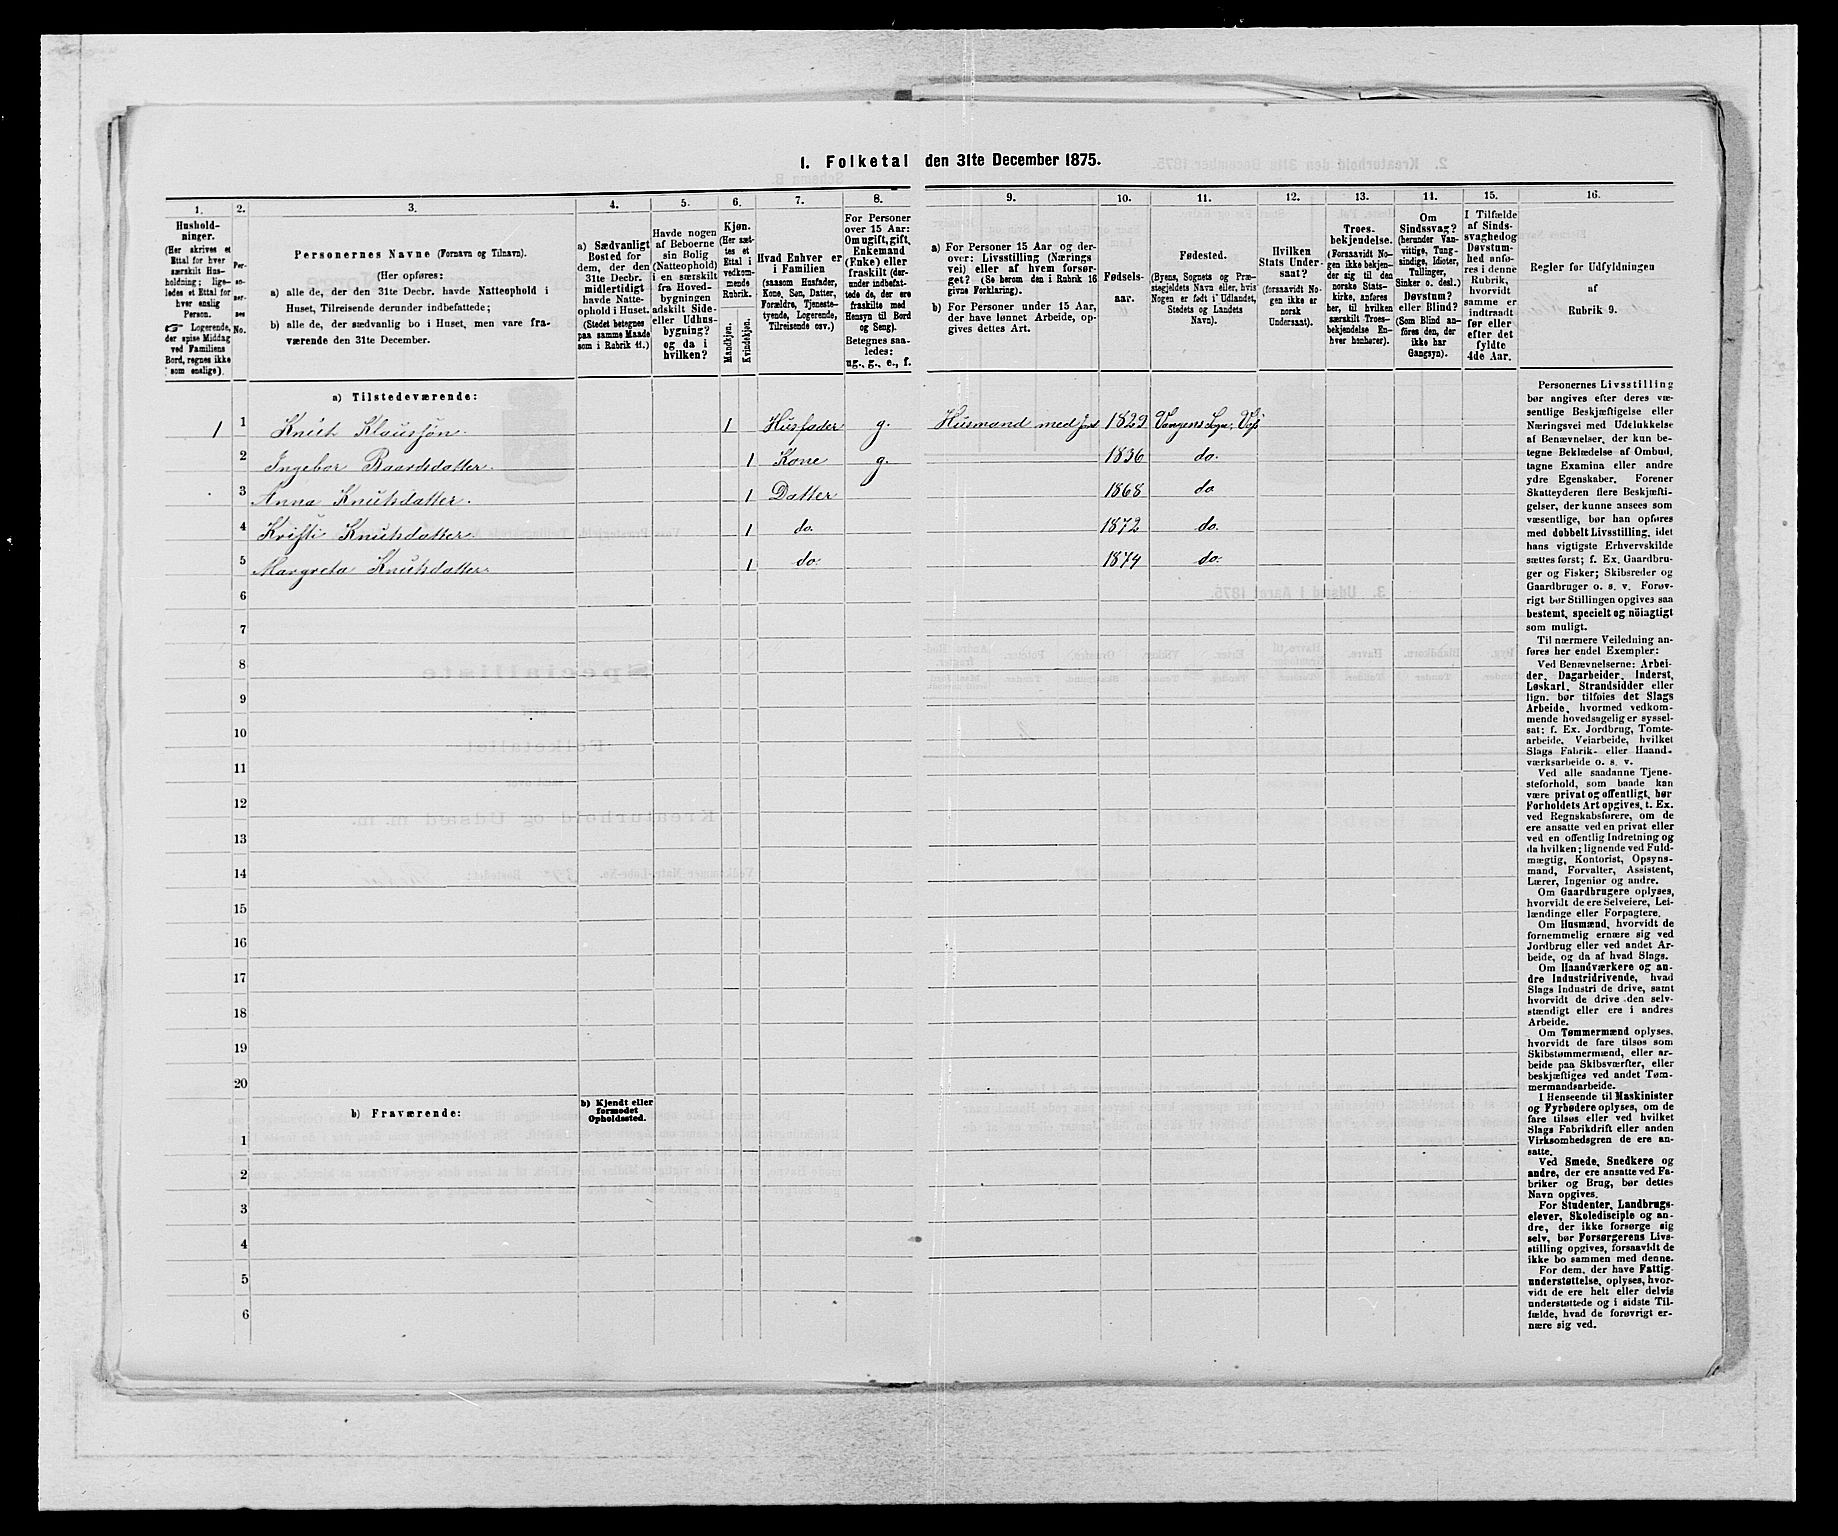 1. Folketal den 31te December 1875.
1.
2.
3.
4.
5.
6.
7.
8.
9.
10.
11.
12.
13.
14.
15.
16.
Hushold-
ninger.
(Her skrives et
Ettal for hver
særskilt Hus-
holdning; lige-
ledes et Ettal for
hver enslig
Person.
☞ Logerende,
der spise Middag
ved Familiens
Bord, regnes ikke
som enslige).
Per-
so-
ner-
nes
No.
Personernes Navne (Fornavn og Tilnavn).
(Her opføres:
a) alle de, der den 31te Decbr. havde Natteophold i
Huset, Tilreisende derunder indbefattede;
b) alle de, der sædvanlig bo i Huset, men vare fra-
værende den 31te December.
a) Sædvanligt
Bosted for
dem, der den
31te Decbr.
midlertidigt
havde Natte-
ophold i Huset.
(Stedet betegnes
paa samme Maade
som i Rubrik 11.)
Havde nogen
af Beboerne
sin Bolig
(Natteophold)
i en særskilt
fra Hoved-
bygningen
adskilt Side-
eller Udhus-
bygning?
og da i
hvilken?
Kjøn.
(Her sæt-
tes et
Ettal i
vedkom-
mende
Rubrik.
Mandkjøn.
Kvindekjøn.
Hvad Enhver er
i Familien
(saasom Husfader,
Kone, Søn, Datter,
Forældre, Tjeneste-
tyende, Logerende,
Tilreisende osv.)
For Personer
over 15 Aar:
Om ugift, gift,
Enkemand
(Enke) eller
fraskilt (der-
under indbefat-
tede de, der ere
fraskilte med
Hensyn til Bord
og Seng).
Betegnes saa-
ledes:
ug., g., e., f.
a) For Personer 15 Aar og der-
over: Livsstilling (Nærings
vei) eller af hvem forsør-
get? (Se herom den i Rubrik 16
givne Forklaring).
b) For Personer under 15 Aar,
der have lønnet Arbeide, op-
gives dettes Art.
Fødsels-
aar.
Fødested.
(Byens, Sognets og Præ-
stegjeldets Navn eller, hvis
Nogen er født i Udlandet,
Stedets og Landets
Navn).
Hvilken
Stats Under-
saat?
(forsaavidt No-
gen ikke er
norsk
Undersaat).
Troes-
bekjendelse.
(Forsaavidt No-
gen ikke bekjen-
der sig til den
norske Stats-
kirke, anføres
her, til hvilken
særskilt Troes-
bekjendelse En-
hver henhører).
Om
Sindssvag?
(herunder Van-
vittige, Tung-
sindige, Idioter,
Tallinger,
Sinker o. desl.)
Døvstum?
eller Blind?
(Som Blind an-
føres den, der
ikke har
Gangsyn).
I Tilfælde
af Sinds-
svaghed og
Døvstum-
hed anfø-
res i denne
Rubrik,
hvorvidt
samme er
indtraadt
før eller
efter det
fyldte
4de Aar.
Regler for Udfyldningen
af
Rubrik 9.
a) Tilstedeværende:
1 1 Knut Klaussøn. 1 Husfader g. Husmand med Jord 1829 Vangens Sogn, Voss
2 Ingebor Baardsdatter. 1 Kone g. 1836 do.
3 Anna Knutsdatter. 1 Datter 1868 do
4 Kristi Knutsdatter. 1 do. 1872 do.
5 Margreta Knutsdatter. 1 do. 1874 do.
6
7
8
9
10
11
12
13
14
15
16
17
18
19
20
b) Fraværende:
b) Kjendt eller
formodet
Opholdssted.
1
2
3
4
5
6
Personernes Livsstilling
bør angives efter deres væ-
sentlige Beskjæftigelse eller
Næringsvei med Udelukkelse
af Benævnelser, der kun be-
tegne Beklædelse af Ombud,
tagne Examina eller andre
ydre Egenskaber. Forener
Skatteyderen flere Beskjæfti-
gelser, der kunne ansees som
væsentlige, bør han opføres
med dobbelt Livsstilling, idet
hans vigtigste Erhvervskilde
sættes først; f. Ex. Gaardbru-
ger og Fisker; Skibsreder og
Gaardbruger o. s. v. Forøv-
rigt bør Stillingen opgives saa
bestemt, specielt og nøiagtigt
som muligt.
Til nærmere Veiledning an-
føres her endel Exempler:
Ved Benævnelserne: Arbei-
der, Dagarbeider, Inderst,
Løskarl, Strandsidder eller
lign. bør tilføies det Slags
Arbeide, hvormed vedkom-
mende hovedsagelig er syssel-
sat; f. Ex. Jordbrug, Tomte-
arbeide, Veiarbeide, hvilket
Slags Fabrik- eller Haand-
værksarbeide o. s. v.
Ved alle saadanne Tjene-
steforhold, som baade kan
være privat og offentligt, bør
Forholdets Art opgives, t. Ex.
ved Regnskabsførere, om de
ere ansatte ved en privat eller
ved en offentlig Indretning og
da hvilken; lignende ved Fuld-
mægtig, Kontorist, Opsyns-
mand, Forvalter, Assistent,
Lærer, Ingeniør og andre.
Om Gaardbrugere oplyses,
hvorvidt de ere Selveiere, Lei-
lændinge eller Forpagtere.
Om Husmænd, hvorvidt de
fornemmelig ernære sig ved
Jordbrug eller ved andet Ar-
beide, og da af hvad Slags.
Om Haandværkere og an-
dre Industridrivende, hvad
Slags Industri de drive, samt
hvorvidt de drive den selv-
stændigt eller ere i andres
Arbeide.
Om Tømmermænd oplyses,
hvorvidt de fare tilsøs som
Skibstømmermænd, eller ar-
beide paa Skibsværfter, eller
beskjæftiges ved andet Tøm-
mermandsarbeide.
I Henseende til Maskinister
og Fyrbødere oplyses, om de
fare tilsøs eller ved hvilket
Slags Fabrikdrift eller anden
Virksomhedsgren de ere an-
satte.
Ved Smede, Snedkere og
andre, der ere ansatte ved Fa-
briker og Brug, bør dettes
Navn opgives.
For Studenter, Landbrugs-
elever, Skoledisciple og an-
dre, der ikke forsørge sig
selv, bør Forsørgerens Livs-
stilling opgives, forsaavidt de
ikke bo sammen med denne.
For dem, der have Fattig-
understøttelse, oplyses, hvor-
vidt de ere helt eller delvis
understøttede og i sidste Til-
fælde, hvad de forøvrigt er-
nære sig ved.